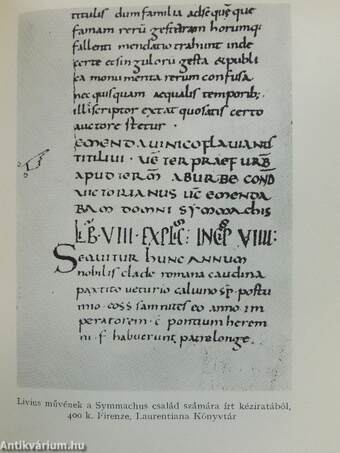 titulis dum familia ad se quęque
famam rerū gestarum horumq;
fallenti mendatio trahunt inde
certe et singulorū gesta et publi
ca monumenta rerum confusa
nec quisquam aequalis temporib;
illis scriptor extat quo satis certo
auctore stetur
EMENDAVI NICOFLAVIANVS
TITI LIVI · VC TER PRAEF URB
APUD TERM AB URBE COND
VICTORIANUS UC EMENDA
BAM DOMNI SYMMACHIS
LIB · VIII · EXPLC : INCP VIIII :
SEQUITUR HUNC ANNUM
nobilis clade romana caudina
pax tito veturio calvino sp · postu
mio · coss samnites eo anno im
peratorem · c pontium heren
ni · f · habuerunt patre longe ·
Livius művének a Symmachus család számára írt kéziratából,
400 k. Firenze, Laurentiana Könyvtár
Antikvárium.hu